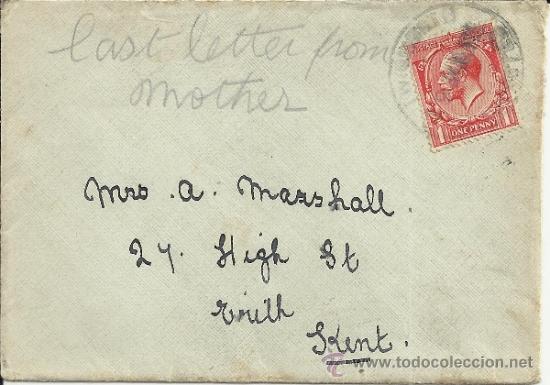 Last letter from
mother
ONE PENNY
1 1
Mrs. A. Marshall.
27. High St
Erith
Kent.
www.todocoleccion.net